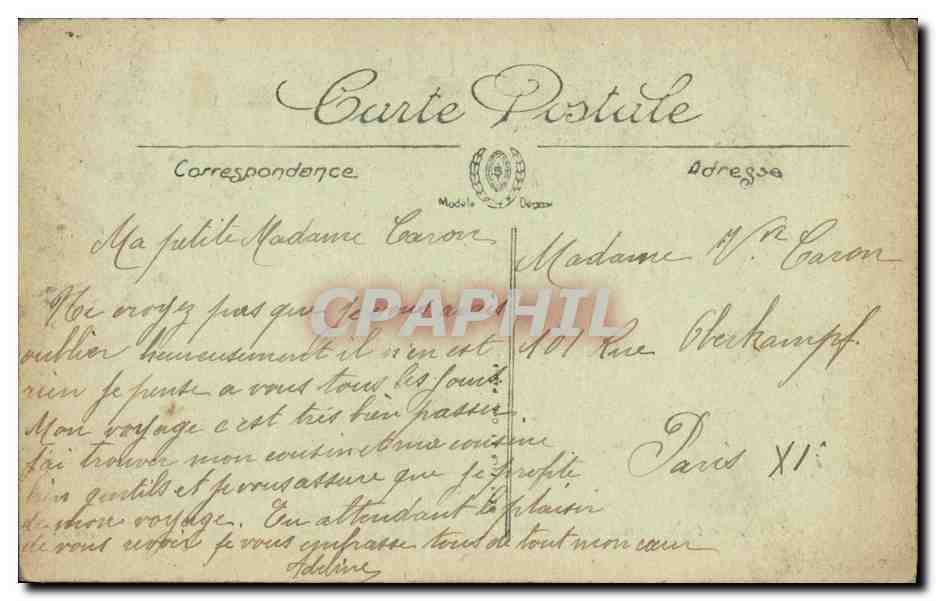 Carte Postale
Correspondance
Adresse
Modèle Déposé
Ma petite Madame Caron
Ne croyez pas que je vous avais
oublier heureusement il n'en est
rien je pense a vous tous les jours
Mon voyage c'est très bien passer
J'ai trouver mon cousin et ma cousine
bien gentils et je vous assure que je profite
de mon voyage. En attendant le plaisir
de vous revoir je vous embrasse tous de tout mon cœur
Adeline
Madame Vve Caron
101 Rue Oberkampf.
Paris XIe
CPAPHIL